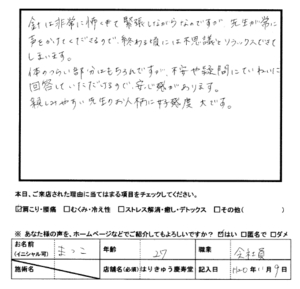 針は非常に怖くて緊張しながらなのですが、先生が常に
声をかけてくださるので、終わる頃には不思議とリラックスできて
しまいます。
体のつらい部分はもちろんですが、不安や疑問にていねいに
回答していただけるので、安心感があります。
親しみやすい先生のお人柄に好感度大です。
本日、ご来店された理由に当てはまる項目をチェックしてください。
☑肩こり・腰痛 □むくみ・冷え性 □ストレス解消・癒し・デトックス □その他( )
※ あなた様の声を、ホームページなどでご紹介してもよろしいですか? ☑はい □匿名で □ダメ
お名前 (イニシャル可) まっこ 年齢 27 職業 会社員
施術名 店舗名(必須) はりきゅう慶寿堂 記入日 年11月9日